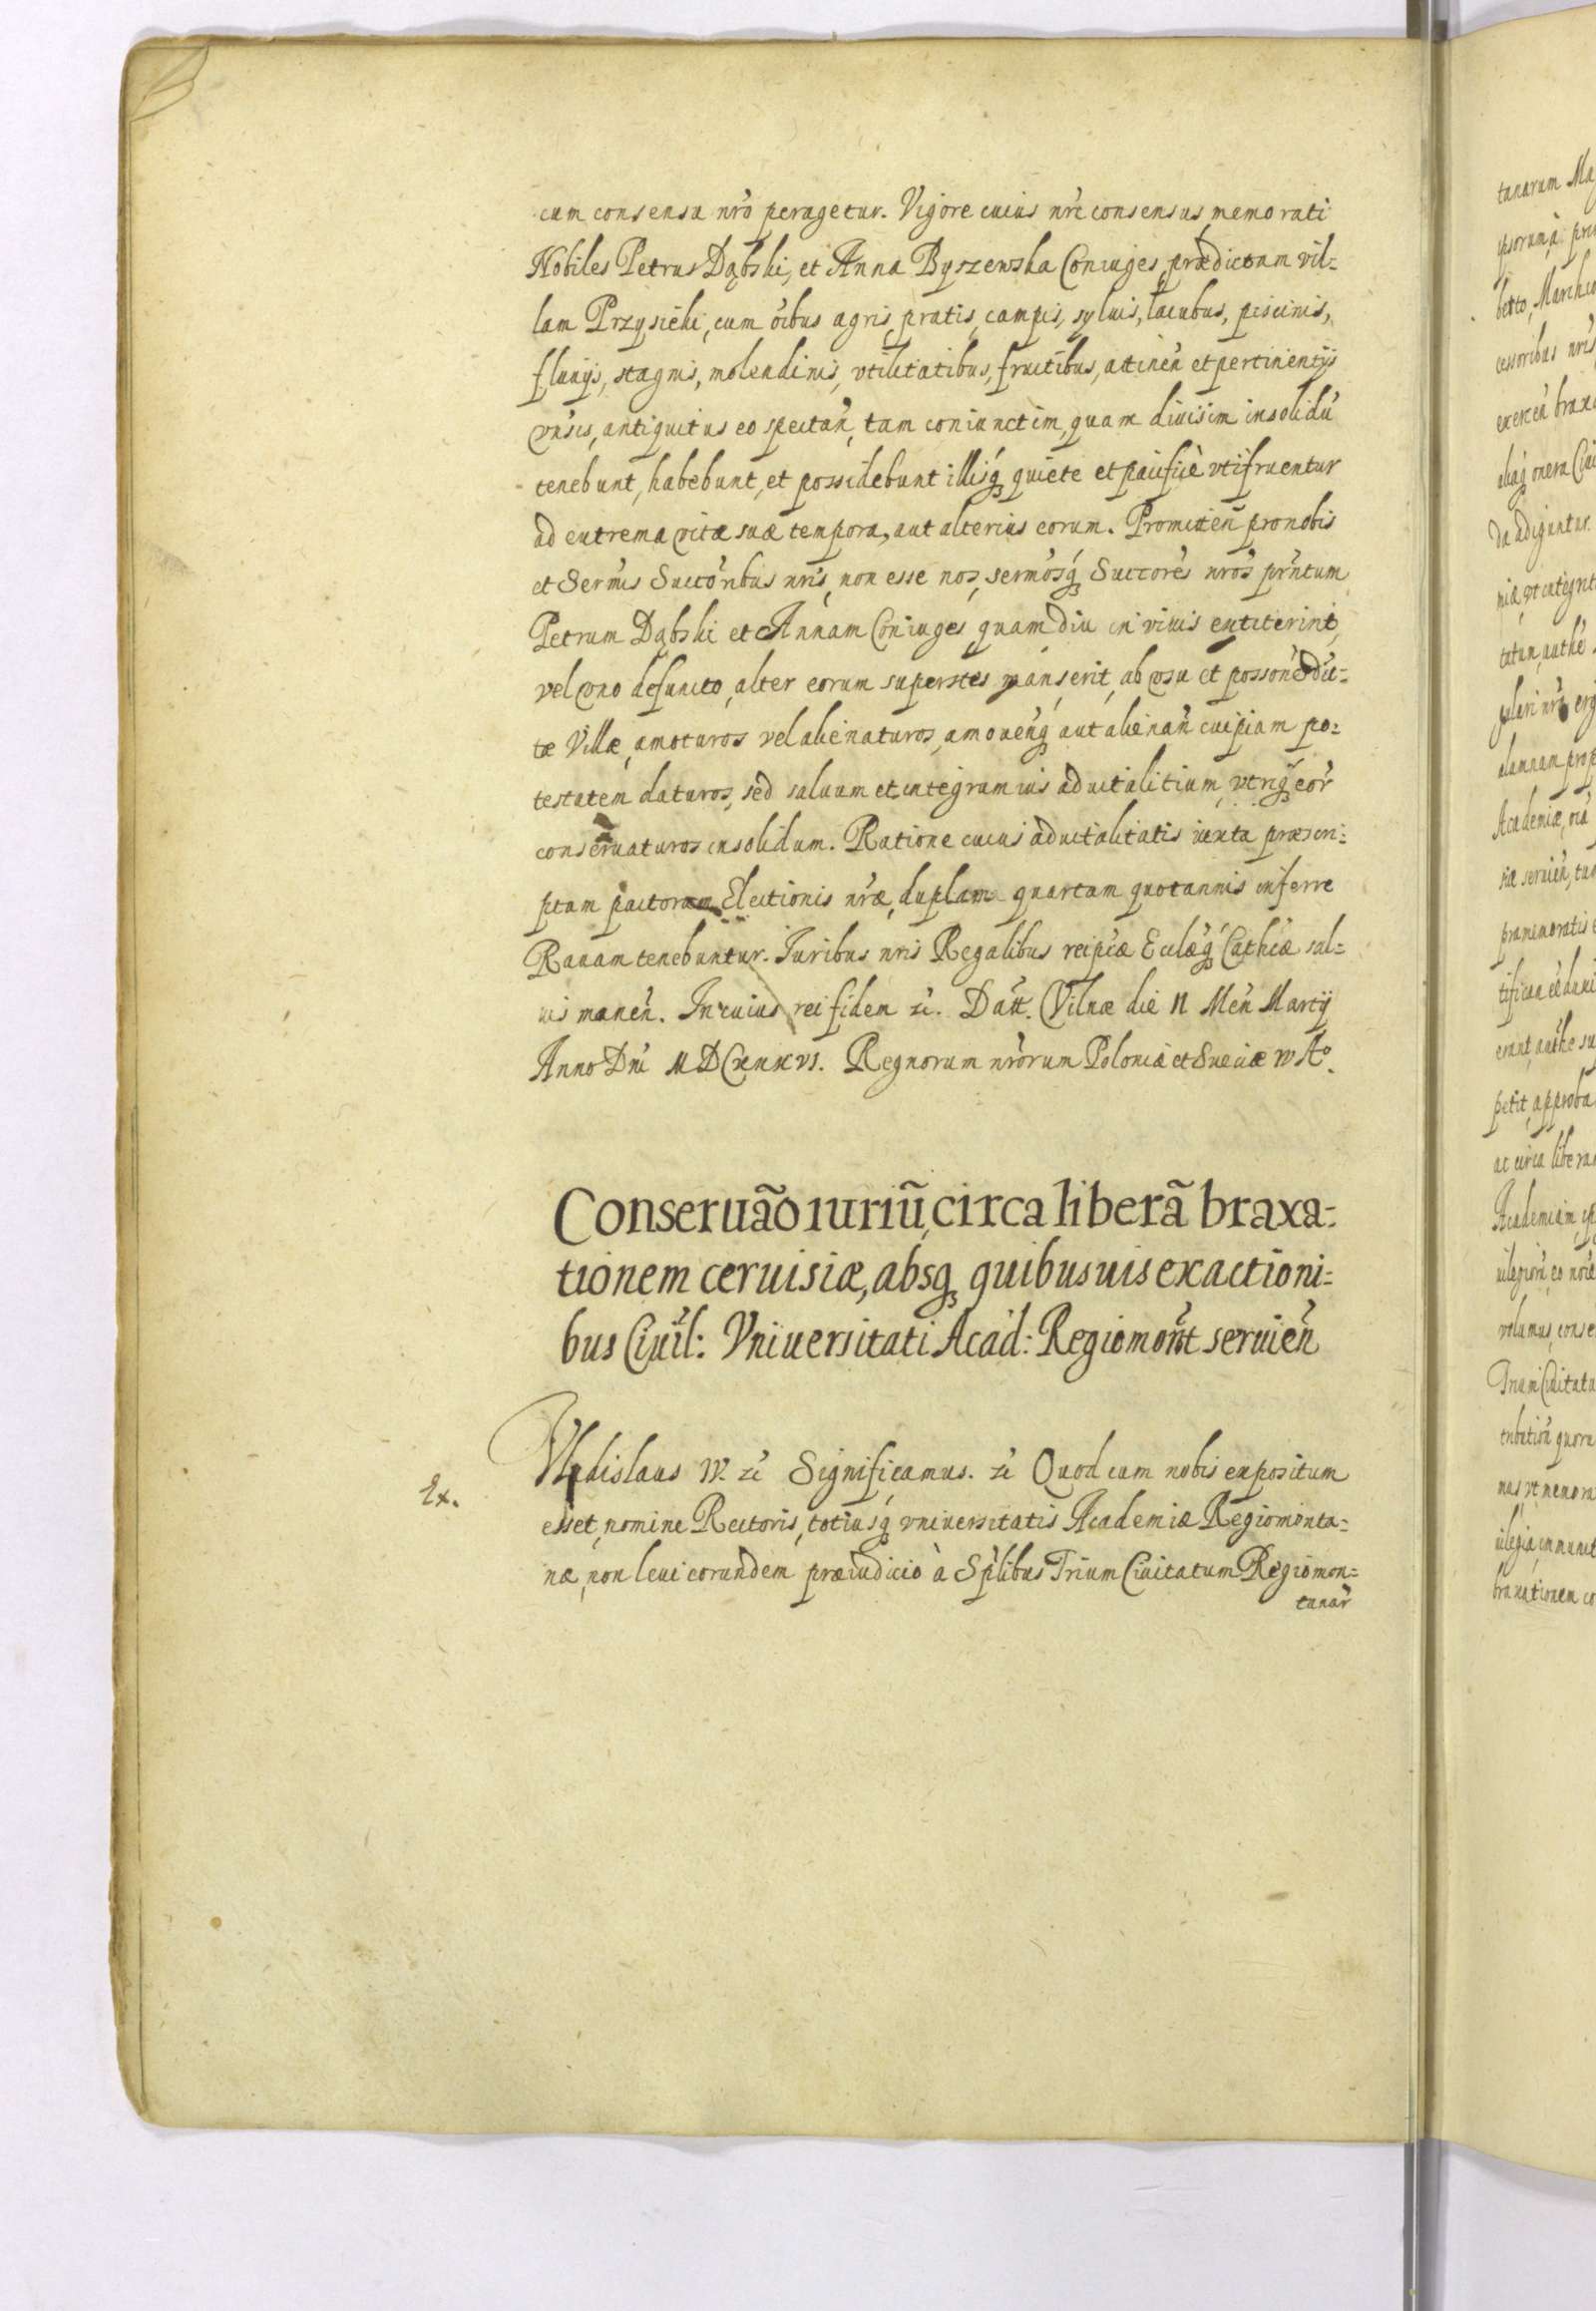 cum consensu nr̃o peragetur. Vigore cuius nr̃i consensus, memorati
Nobiles Petrus Dąbski, et Anna Byszewska Coniuges, prædictam vil=
lam Przysieki, cum oĩbus agris, pratis, campis, syluis, lacubus, piscinis,
fluuijs, stagnis, molendinis, vtilitatibus, fructibus, attineñ et pertinentijs
vñsis, antiquitus eo spectañ, tam coniunctim, quam diuisim insolidũ
tenebunt, habebunt, et possidebunt illisq́ꝫ quiete et pacificè vtifruentur
ad extrema vitæ suæ tempora, aut alterius eorum. Promitteñ pro nobis
et Serm̃is Succõribus nr̃is, non esse nos, serm̃osq́ꝫ Succores nr̃os pr̃ntum
Petrum Dąbski et Annam Coniuges, quam diu in viuis extiterint,
vel vno defuncto, alter eorum superstes manserit, ab vsu et possoñe dic=
tæ Villæ, amoturos vel alienaturos, amoueñq́ꝫ aut alienañ cuipiam po=
testatem daturos, sed saluum et integrum ius aduitalitium, vtriq́ꝫ eor̃
conseruaturos insolidum. Ratione cuius aduitalitatis iuxta præscri=
ptam pactorum Electionis nr̃æ, duplam quartam quotannis inferre
Rauam tenebuntur. Iuribus nr̃is Regalibus reipcæ Eccl̃æq́ꝫ Cathcæ sal=
uis maneñ. In cuius rei fidem zc̃. Datt. Vilnæ die 11 Meñ Martij
Anno Dñi MDCXXXVI. Regnorum nr̃orum Poloniæ et Sueciæ IV Aº.
Conseruão iuriũ, circa liberã braxa=
tionem ceruisiæ, absqꝫ quibusuis exactioni=
bus Ciuil: Vniuersitati Acad: Regiomoñt seruieñ
Ex.
Vladislaus IV. zc̃ Significamus. zc̃ Quod cum nobis expositum
esset, nomine Rectoris, totiusq́ꝫ vniuersitatis Academiæ Regiomonta=
næ, non leui eorundem præiudicio à Spl̃ibus Trium Ciuitatum Regiomon=
tanar̃